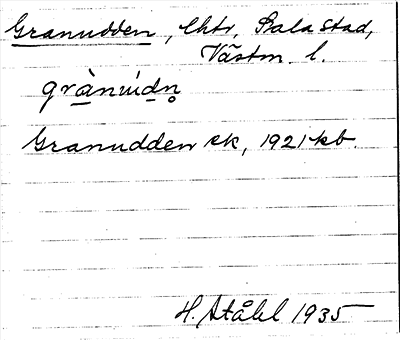 Granudden, lht, Sala stad,
Västm. l.
grànúdn̥
Granudden ek, 1921 kb.
H. Ståhl 1935